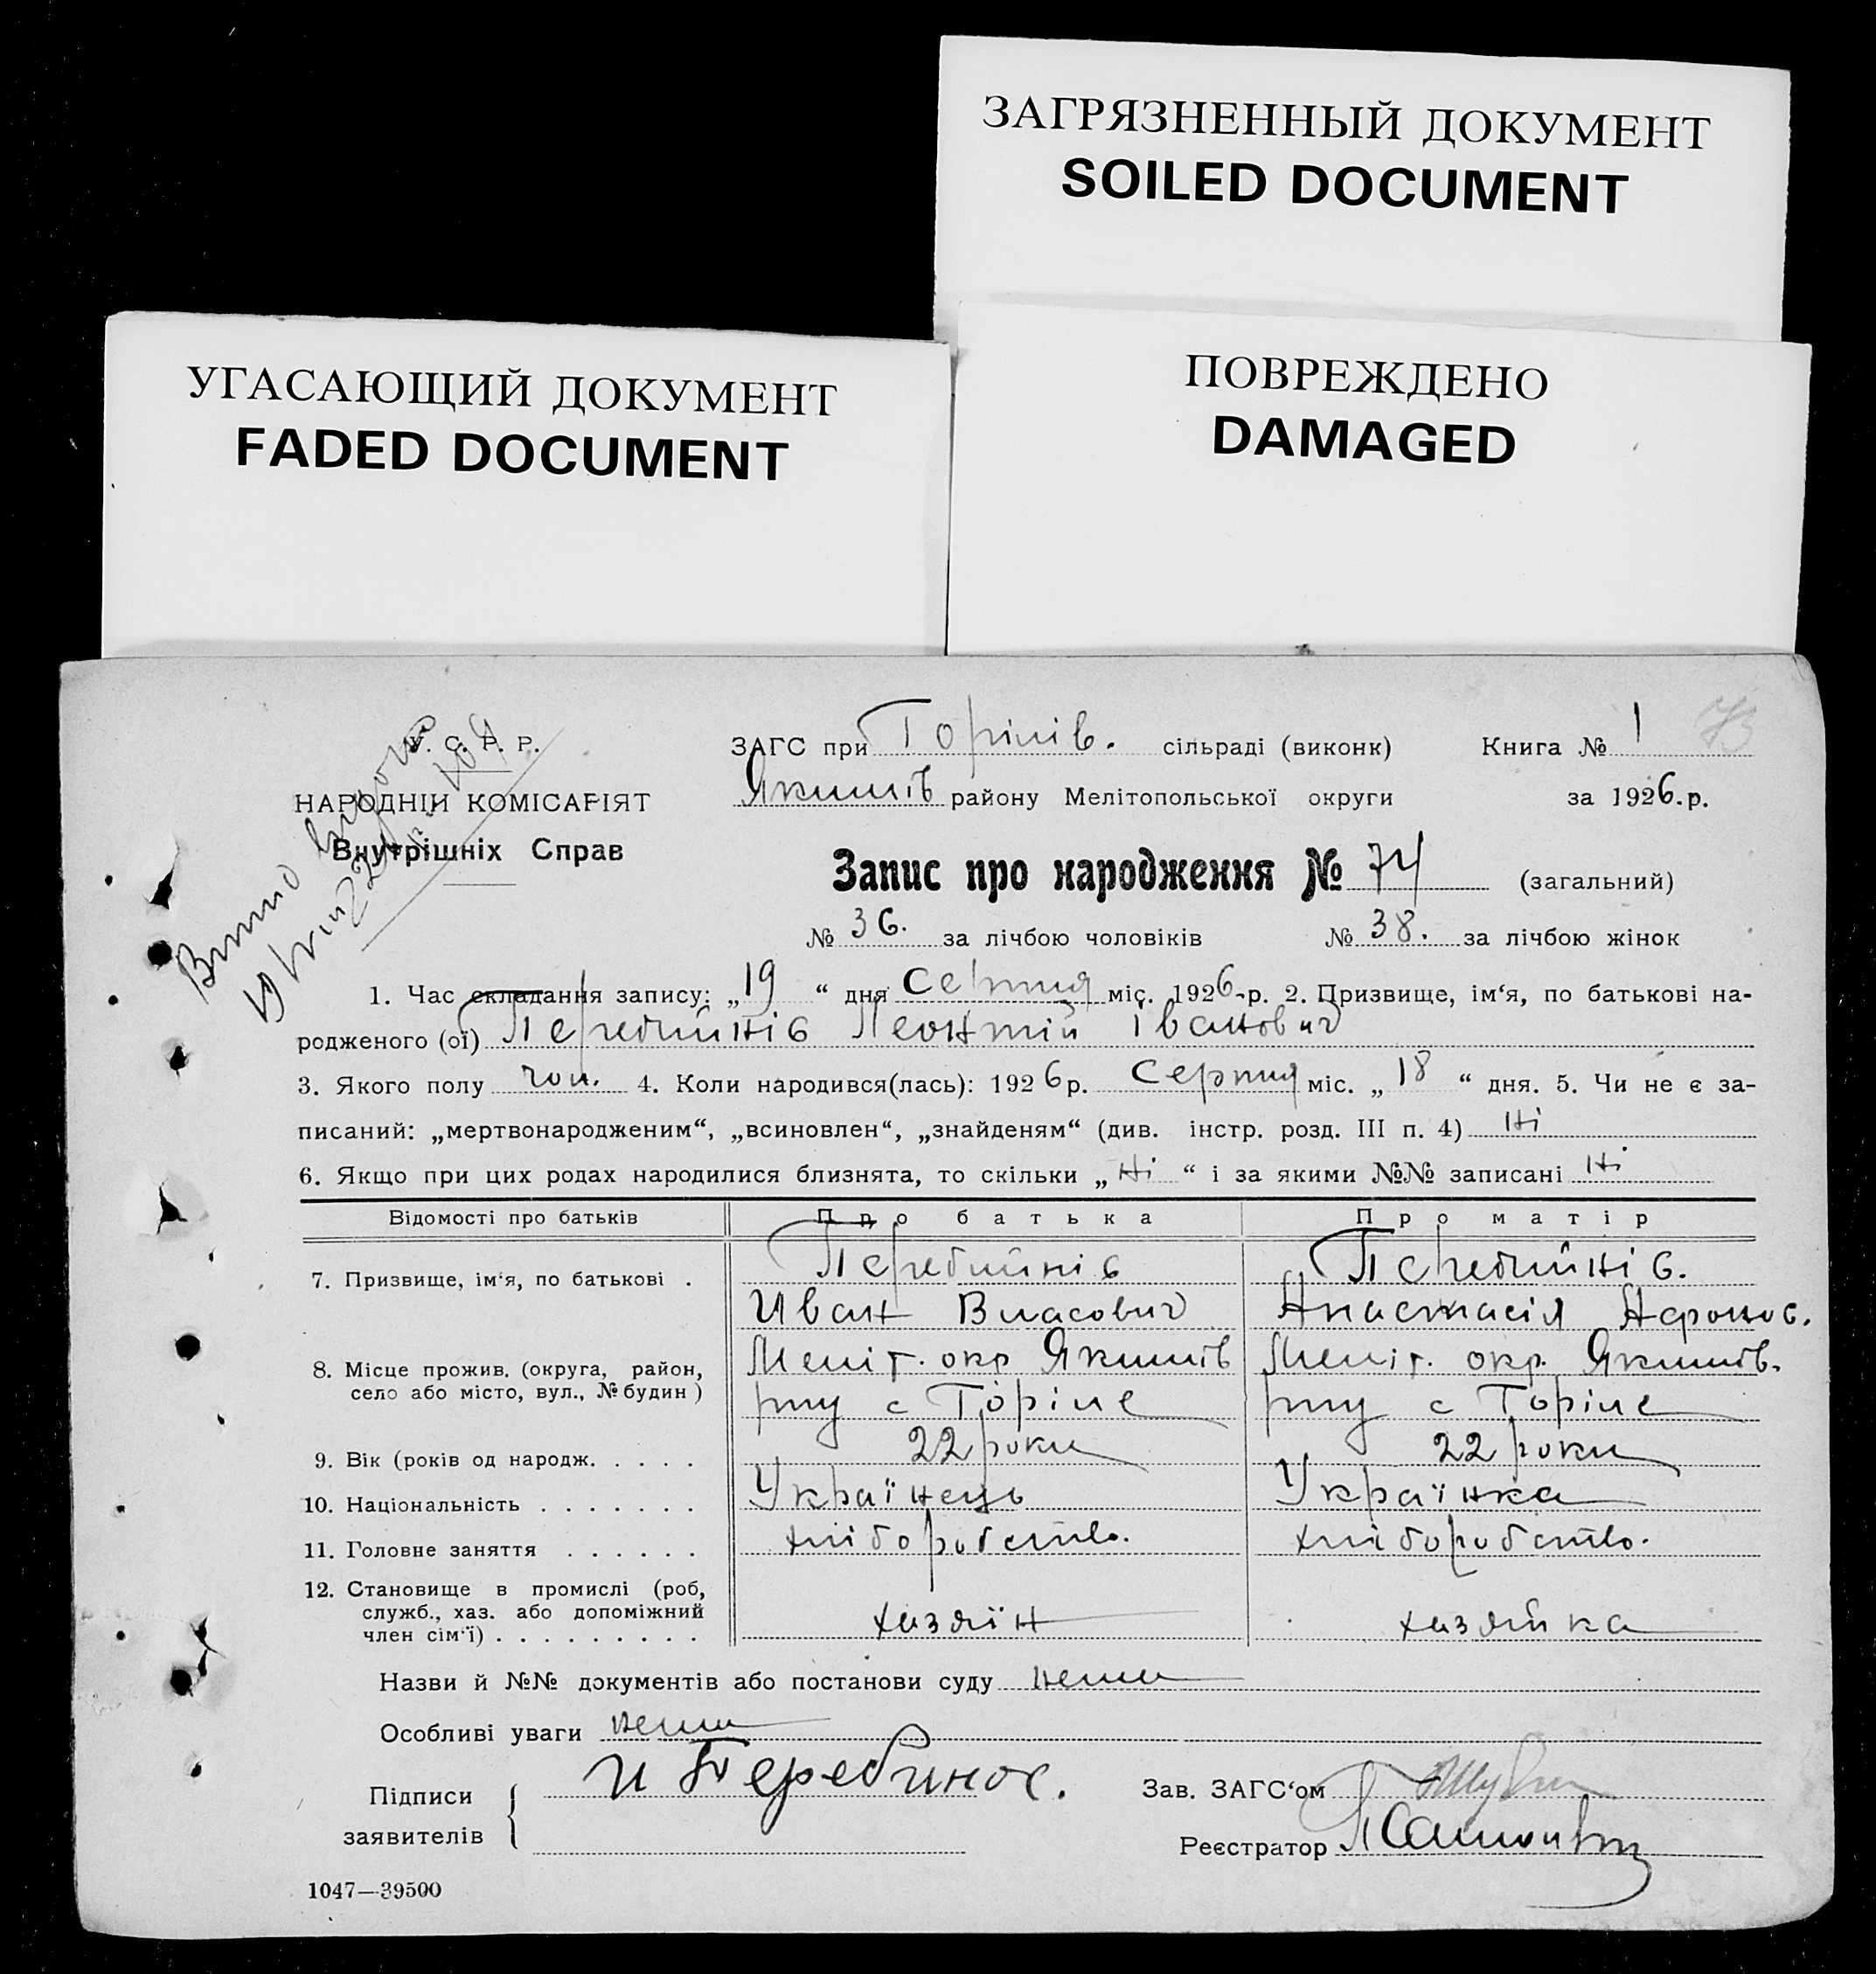 ЗАГРЯЗНЕННЫЙ ДОКУМЕНТ
SOILED DOCUMENT
УГАСАЮЩИЙ ДОКУМЕНТ
FADED DOCUMENT
ПОВРЕЖДЕНО
DAMAGED
У. С. Р. Р.
НАРОДНІЙ КОМІСАРІЯТ
Внутрішніх Справ
73
ЗАГС при Горілів. сільраді (виконк) Книга № 1
Якимів району Мелітопольської округи за 1926.р.
Запис про народження № 74 (загальний)
№ 36. за лічбою чоловіків № 38. за лічбою жінок
1. Час складання запису: „19“ дня серпня міс. 1926 р. 2. Призвище, ім‘я, по батькові на-
родженого (ої) Перебийніс Леонтій Іванович
3. Якого полу чол. 4. Коли народився(лась): 1926 р. Серпня міс. „18“ дня. 5. Чи не є за-
писаний: „мертвонародженим“, „всиновлен“, „знайденям“ (див. інстр. розд. III п. 4) Ні
6. Якщо при цих родах народилися близнята, то скільки „Ні“ і за якими №№ записані Ні
Відомості про батьків Про батька Про матір
7. Призвище, ім‘я, по батькові . Перебийніс Перебийніс.
Иван Власович Анастасія Афонос.
8. Місце прожив. (округа, район, Меліт. окр Якимів Меліт. окр. Якимів.
село або місто, вул., № будин) рну с Горіле рну с Горіле
9. Вік (років од народж. . . . . 22 роки 22 роки
10. Національність . . . . . . . Українець Українка
11. Головне заняття . . . . . . хліборобство. хліборобство.
12. Становище в промислі (роб,
служб., хаз. або допоміжний
член сім‘ї) . . . . . . . . . хазяїн хазяйка
Назви й №№ документів або постанови суду нема
Особливі уваги нема
Підписи
заявителів
И Перебинос.
Зав. ЗАГС‘ом
Реєстратор
1047—39500